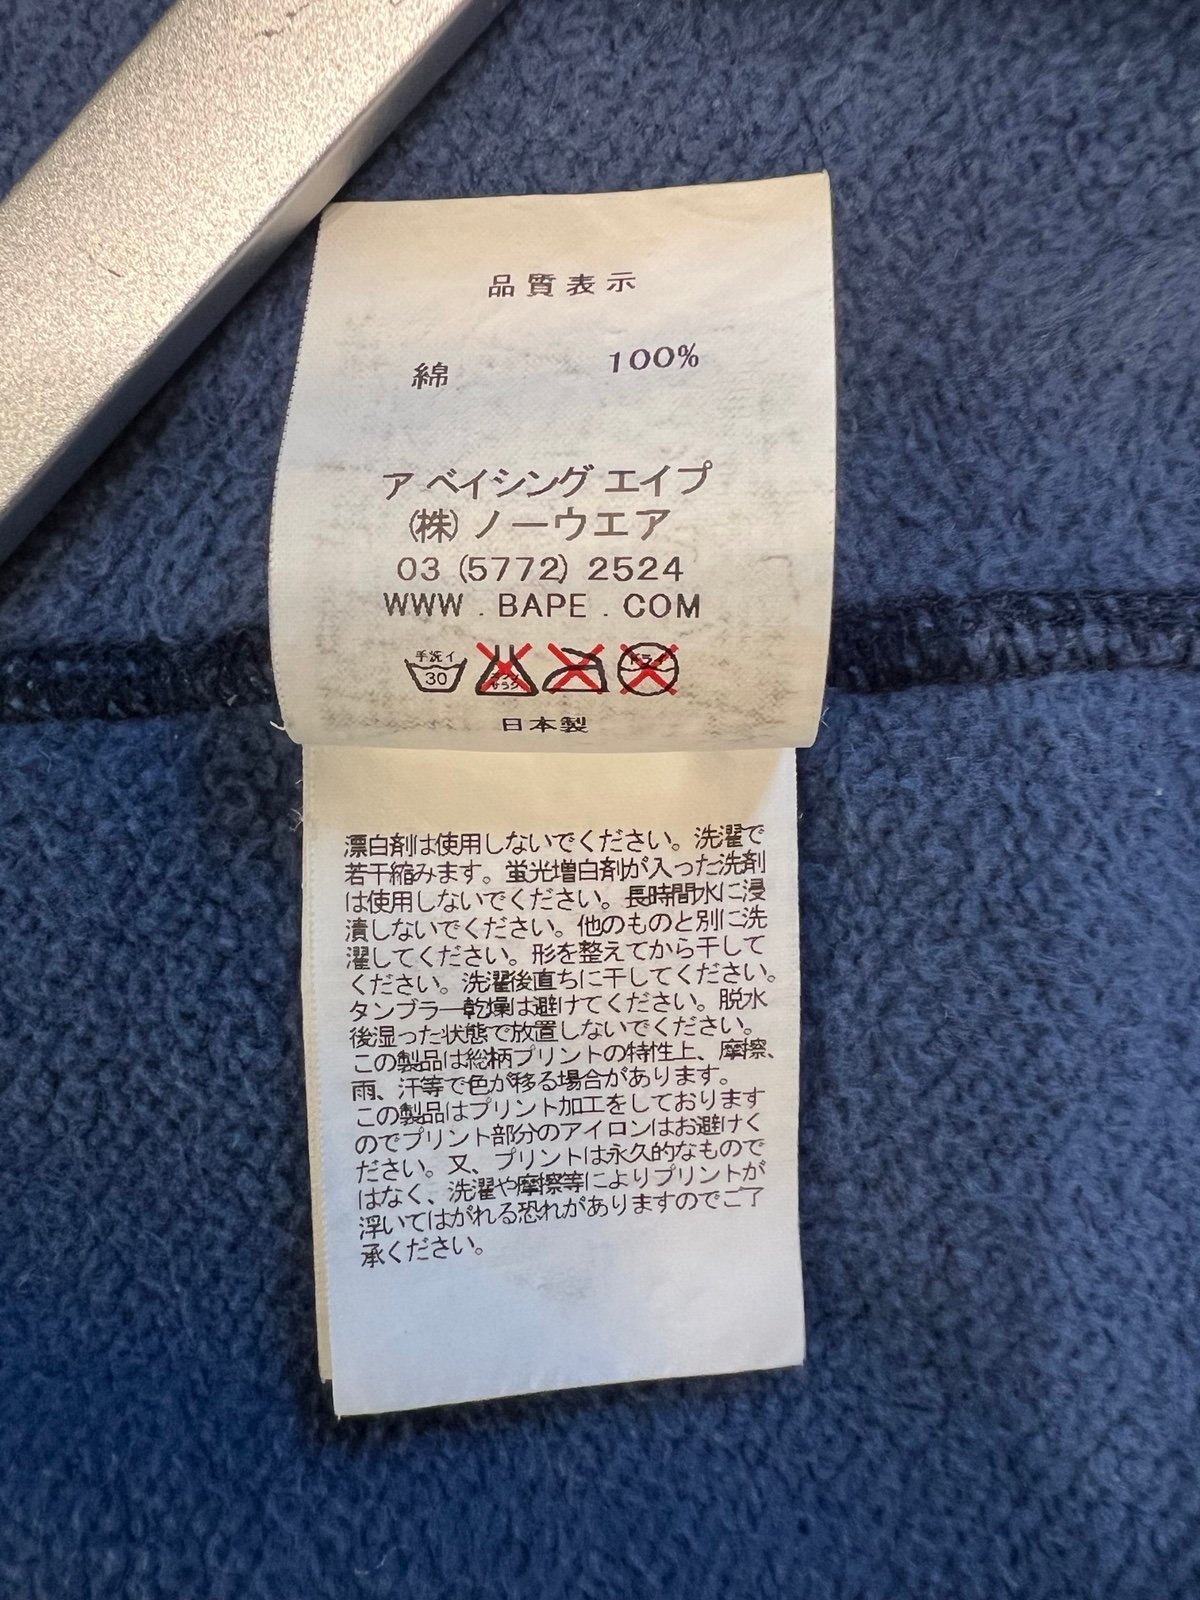 品質表示
綿 100%
ア ベイシング エイプ
(株) ノーウエア
03 (5772) 2524
WWW . BAPE . COM
手洗イ
30
エンソ
サラシ
ドライ
日本製
漂白剤は使用しないでください。洗濯で
若干縮みます。蛍光増白剤が入った洗剤
は使用しないでください。長時間水に浸
漬しないでください。他のものと別に洗
濯してください。形を整えてから干して
ください。洗濯後直ちに干してください。
タンブラー乾燥は避けてください。脱水
後湿った状態で放置しないでください。
この製品は総柄プリントの特性上、摩擦、
雨、汗等で色が移る場合があります。
この製品はプリント加工をしております
のでプリント部分のアイロンはお避けく
ださい。又、プリントは永久的なもので
はなく、洗濯や摩擦等によりプリントが
浮いてはがれる恐れがありますのでご了
承ください。